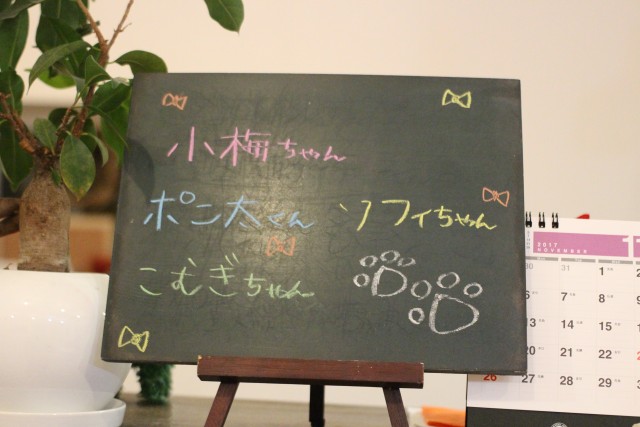 小梅ちゃん
ポン太くん ソフィちゃん
こむぎちゃん
2017
NOVEMBER
30 31 1
6 7 8
13 14 15
20 21 22
26 27 28 29